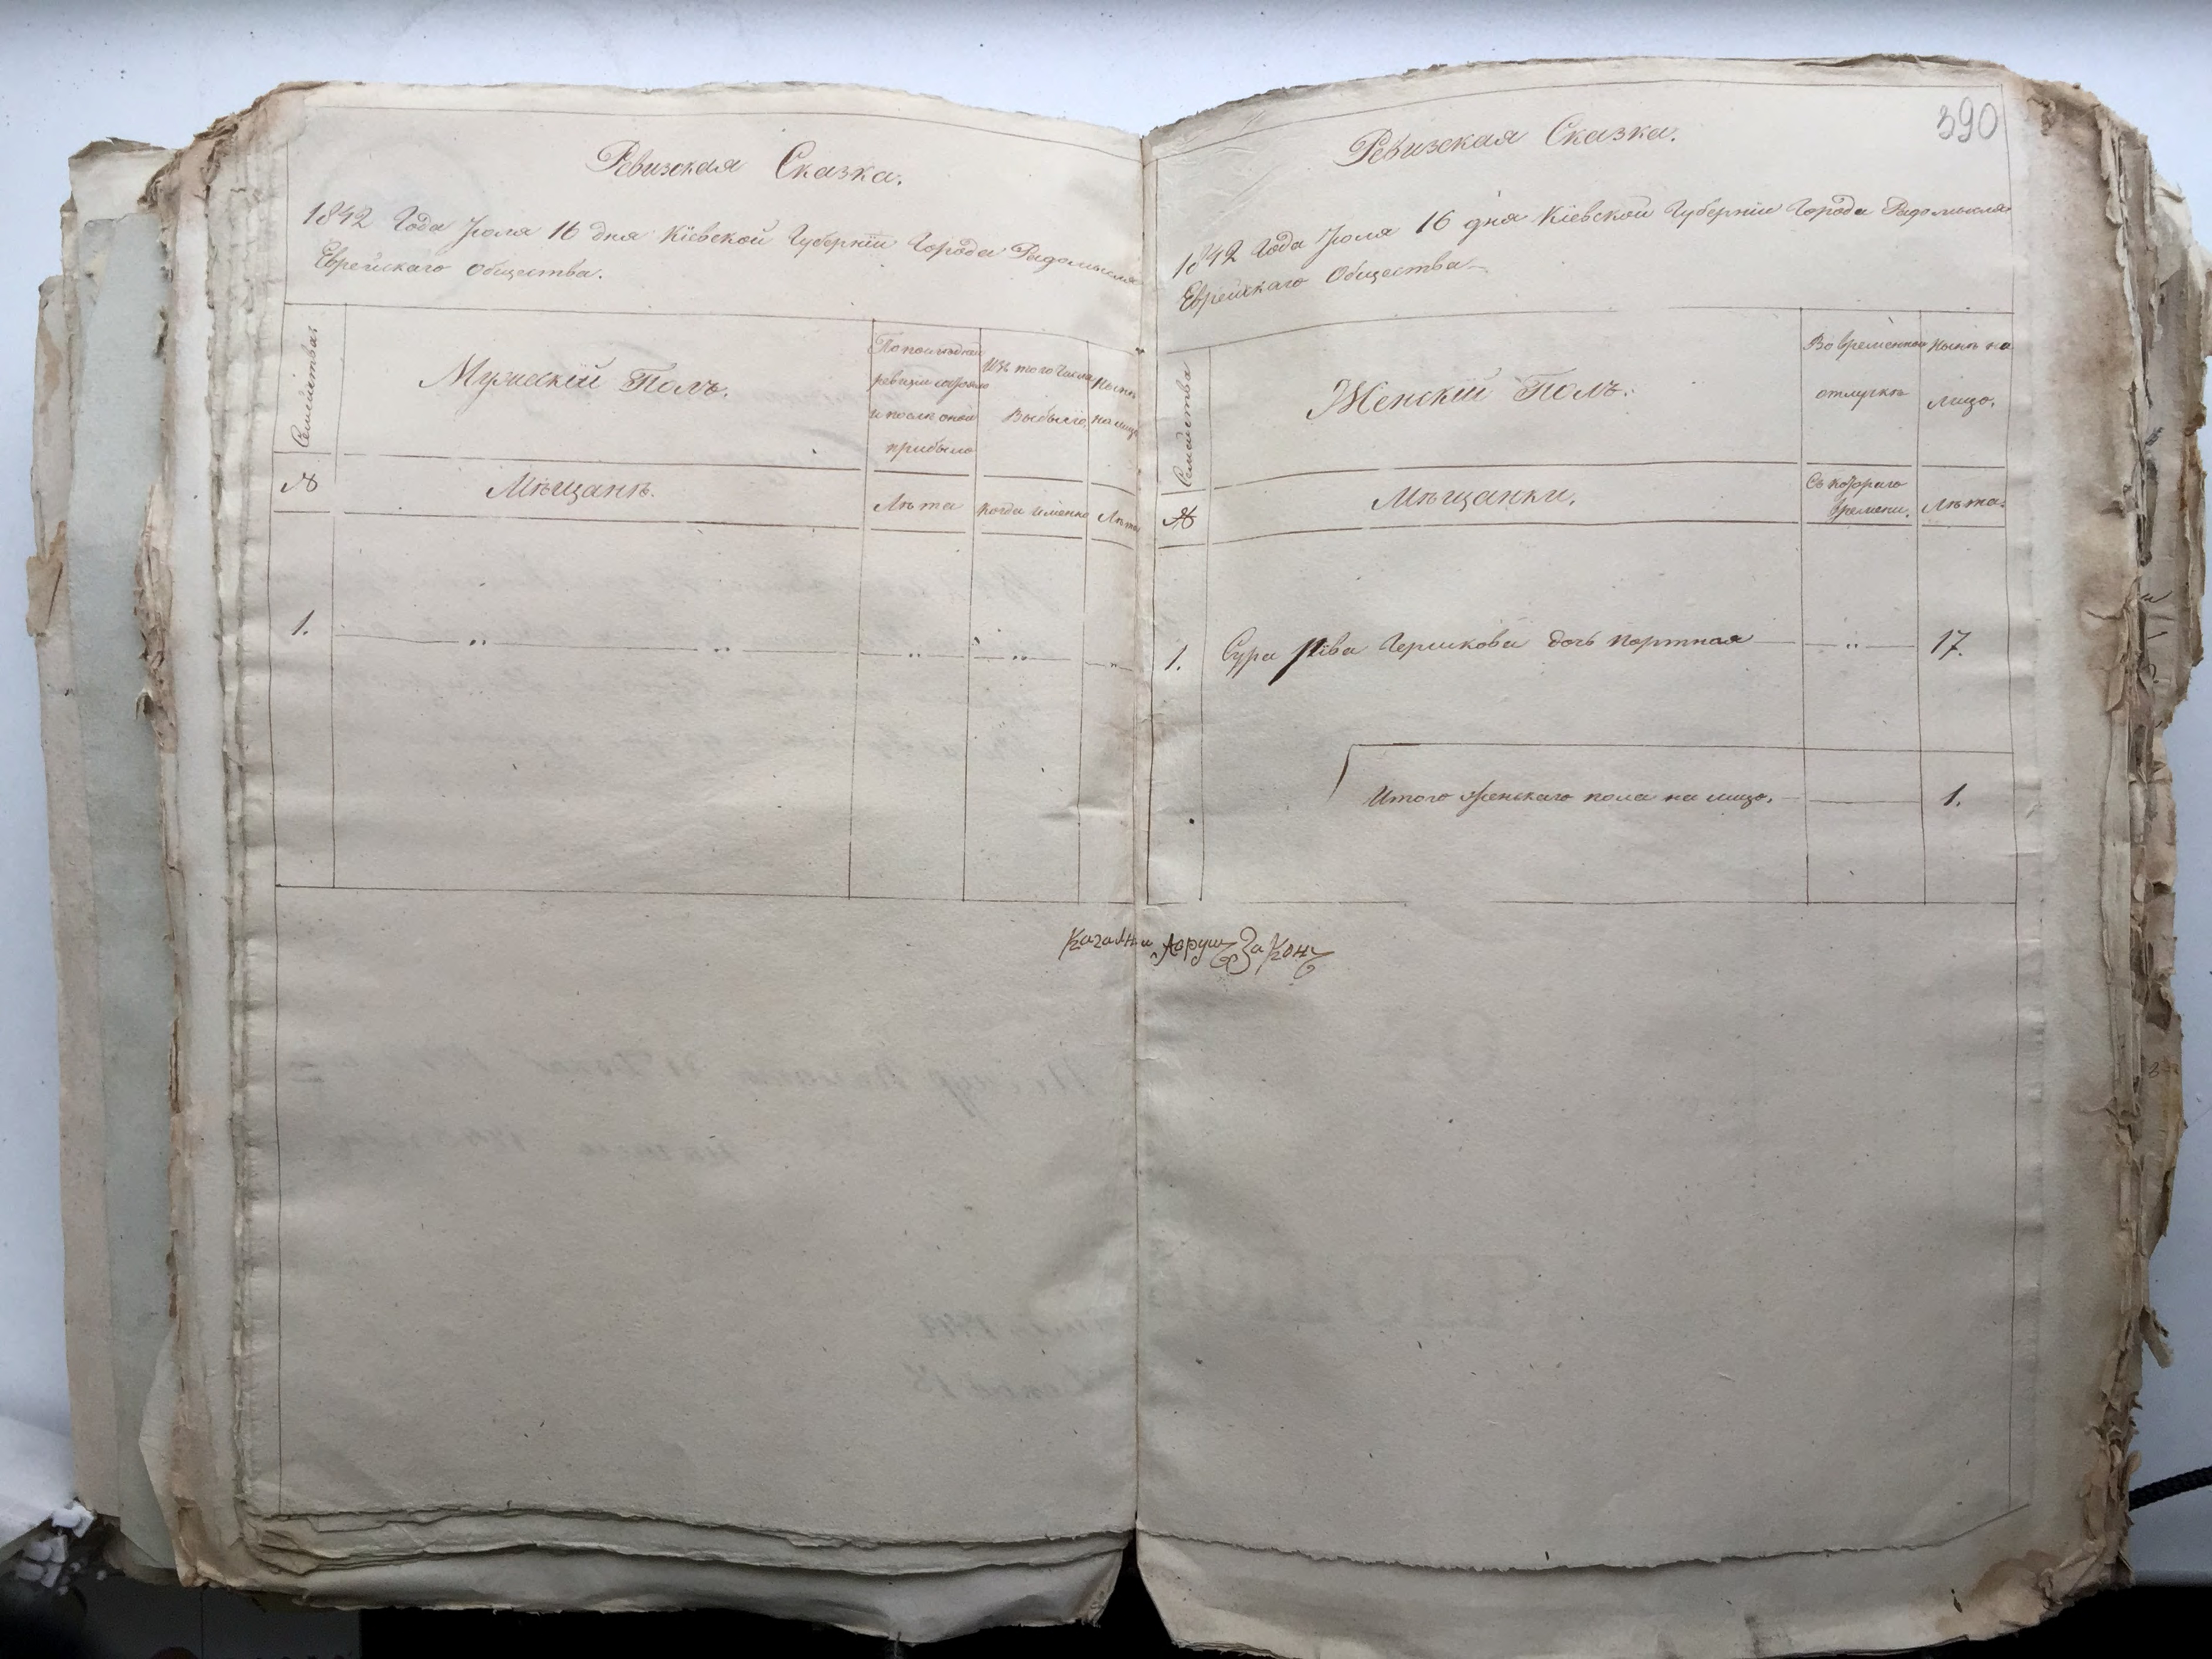 Ревизская Сказка.
1842 Года Июля 16 дня Кіевской Губерніи Города Радомысля
Еврейскаго Общества.
Семейства
Мужескій Полъ.
По последней
ревизіи состояло
и после оной
прибыло
Изъ того числа
Выбыло,
Ныне
на лицо
№
Мѣщанъ.
Лѣта
когда именно
Лѣта
1. „ „ „ „ „
390
Ревизская Сказка.
1842 Года Июля 16 дня Кіевской Губерніи Города Радомысля
Еврейскаго Общества
Семейства
Женскій Полъ.
Во временной
отлучкѣ
Нынѣ на
лицо.
№
Мѣщанки.
Съ котораго
времени.
Лѣта.
1. Сура Рива Гершкова дочь Портная „ 17.
Итого женскаго пола на лицо. 1.